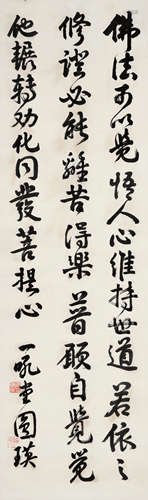 佛法可以覺悟人心維持世道若依之
修證必能離苦得樂普願自覺覺
他輾转劝化同發菩提心
一吼堂圆瑛